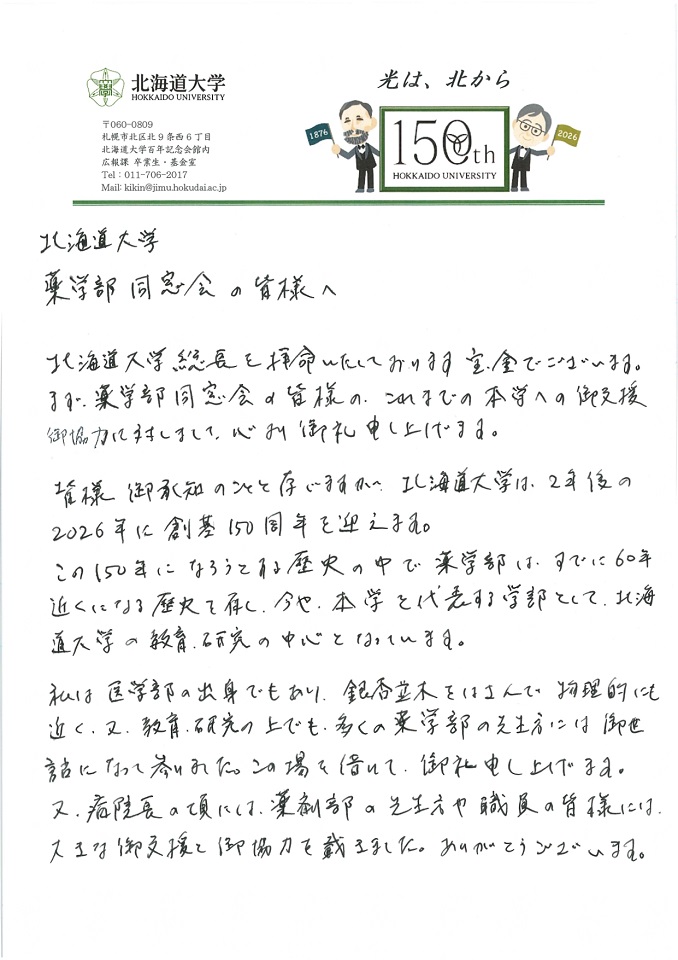 北海道大学
HOKKAIDO UNIVERSITY
〒060-0809
札幌市北区北9条西6丁目
北海道大学百年記念会館内
広報課 卒業生・基金室
Tel：011-706-2017
Mail: kikin@jimu.hokudai.ac.jp
光は、北から
1876
150th
HOKKAIDO UNIVERSITY
2026
北海道大学
薬学部同窓会の皆様へ
北海道大学総長を拝命いたしております寳金でございます。
まず、薬学部同窓会の皆様の、これまでの本学への御支援
御協力に対しまして、心より御礼申し上げます。
皆様御承知のことと存じますが、北海道大学は、2年後の
2026年に創基150周年を迎えます。
この150年になろうとする歴史の中で薬学部は、すでに60年
近くになる歴史を有し、今や、本学を代表する学部として、北海
道大学の教育、研究の中心となっています。
私は医学部の出身でもあり、銀杏並木をはさんで、物理的にも
近く、又、教育、研究の上でも、多くの薬学部の先生方には御世
話になって参りました。この場を借りて、御礼申し上げます。
又、病院長の頃には、薬剤部の先生方や職員の皆様には、
大きな御支援と御協力を戴きました。ありがとうございます。